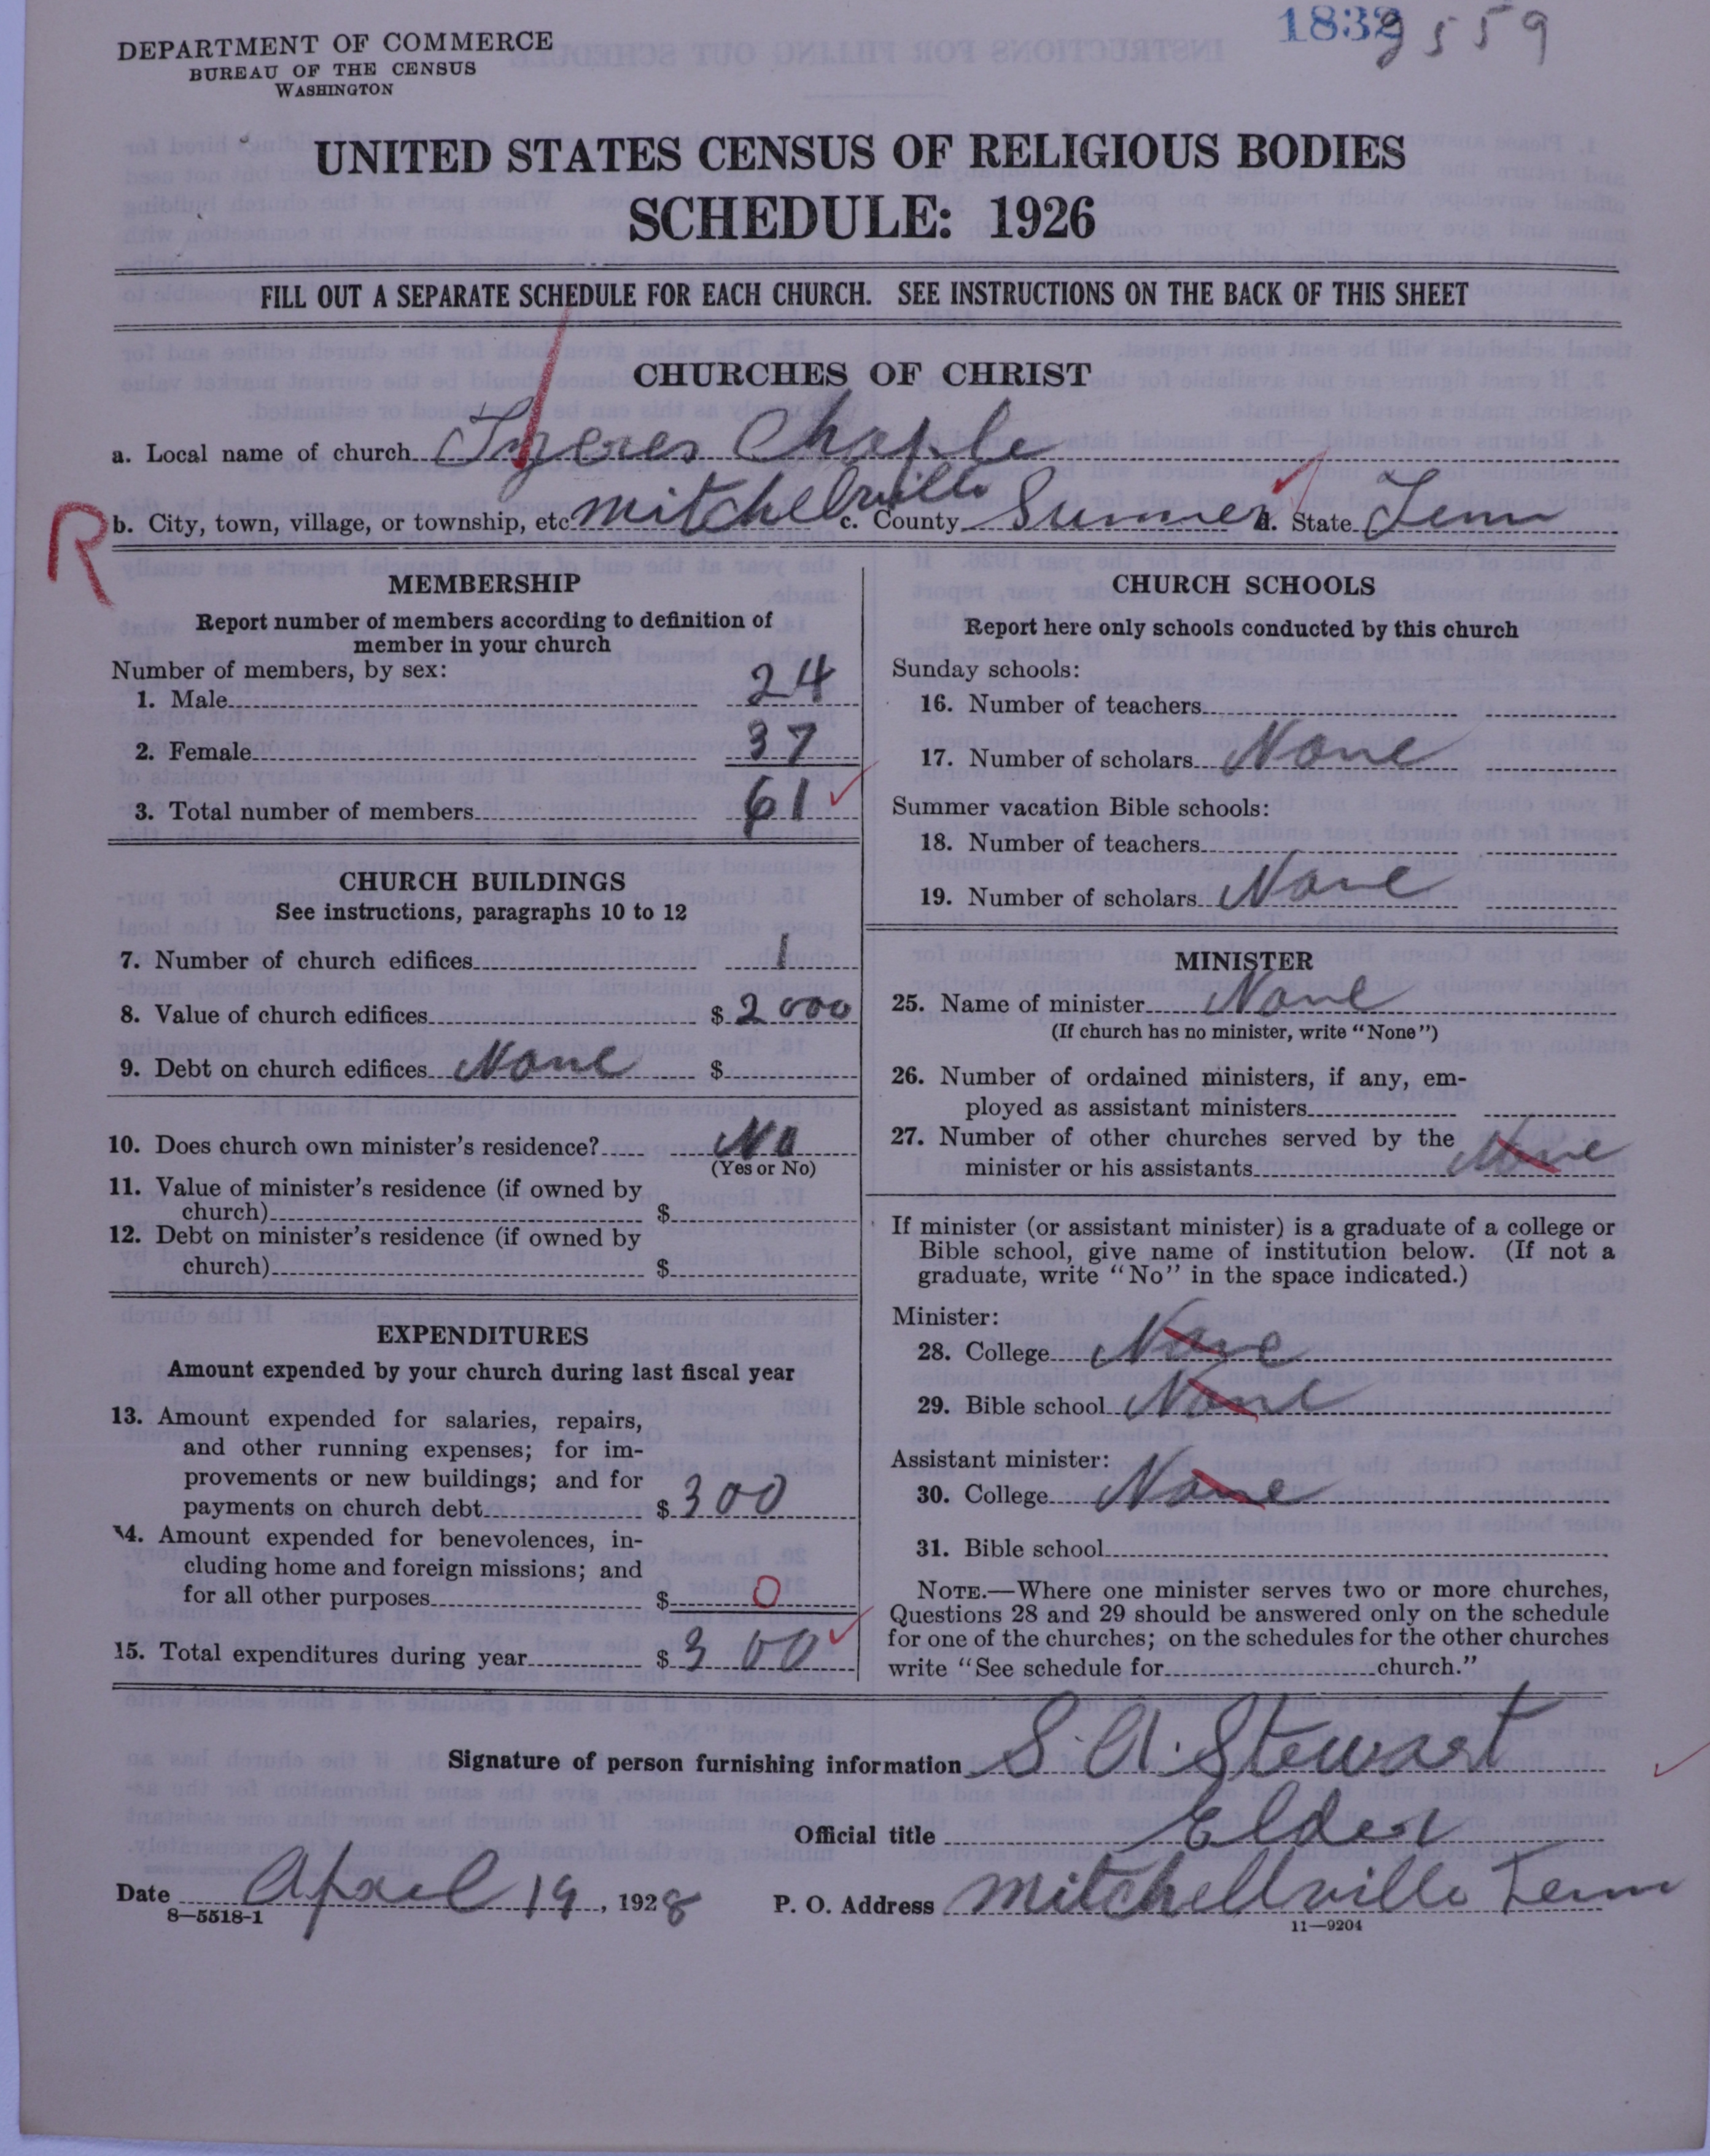 1832
9559
DEPARTMENT OF COMMERCE
BUREAU OF THE CENSUS
WASHINGTON
UNITED STATES CENSUS OF RELIGIOUS BODIES
SCHEDULE: 1926
FILL OUT A SEPARATE SCHEDULE FOR EACH CHURCH. SEE INSTRUCTIONS ON THE BACK OF THIS SHEET
CHURCHES OF CHRIST
a. Local name of church Chaple
R
b. City, town, village, or township, etc. Mitchellville c. County Sumner d. State Tenn
MEMBERSHIP
Report number of members according to definition of
member in your church
Number of members, by sex:
1. Male 24
2. Female 37
3. Total number of members 61
CHURCH BUILDINGS
See instructions, paragraphs 10 to 12
7. Number of church edifices 1
8. Value of church edifices $ 2000
9. Debt on church edifices None $
10. Does church own minister's residence? No
(Yes or No)
11. Value of minister's residence (if owned by
church) $
12. Debt on minister's residence (if owned by
church) $
EXPENDITURES
Amount expended by your church during last fiscal year
13. Amount expended for salaries, repairs,
and other running expenses; for im-
provements or new buildings; and for
payments on church debt $ 300
14. Amount expended for benevolences, in-
cluding home and foreign missions; and
for all other purposes $ 0
15. Total expenditures during year $ 300
CHURCH SCHOOLS
Report here only schools conducted by this church
Sunday schools:
16. Number of teachers
17. Number of scholars None
Summer vacation Bible schools:
18. Number of teachers
19. Number of scholars None
MINISTER
25. Name of minister None
(If church has no minister, write "None")
26. Number of ordained ministers, if any, em-
ployed as assistant ministers
27. Number of other churches served by the
minister or his assistants None
If minister (or assistant minister) is a graduate of a college or
Bible school, give name of institution below. (If not a
graduate, write "No" in the space indicated.)
Minister:
28. College None
29. Bible school None
Assistant minister:
30. College None
31. Bible school
NOTE.—Where one minister serves two or more churches,
Questions 28 and 29 should be answered only on the schedule
for one of the churches; on the schedules for the other churches
write "See schedule for church."
Signature of person furnishing information S. A. Stewart
Official title Elder
Date April 19, 1928 P. O. Address Mitchellville Tenn
8—5518-1
11—9204